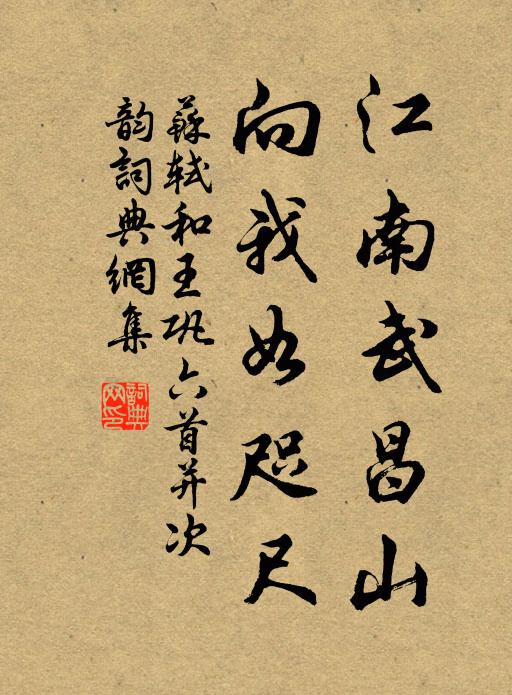 江南武昌山
向我如咫尺
蘇軾和王巩六首并次
韵詞典網集
詞典
网印